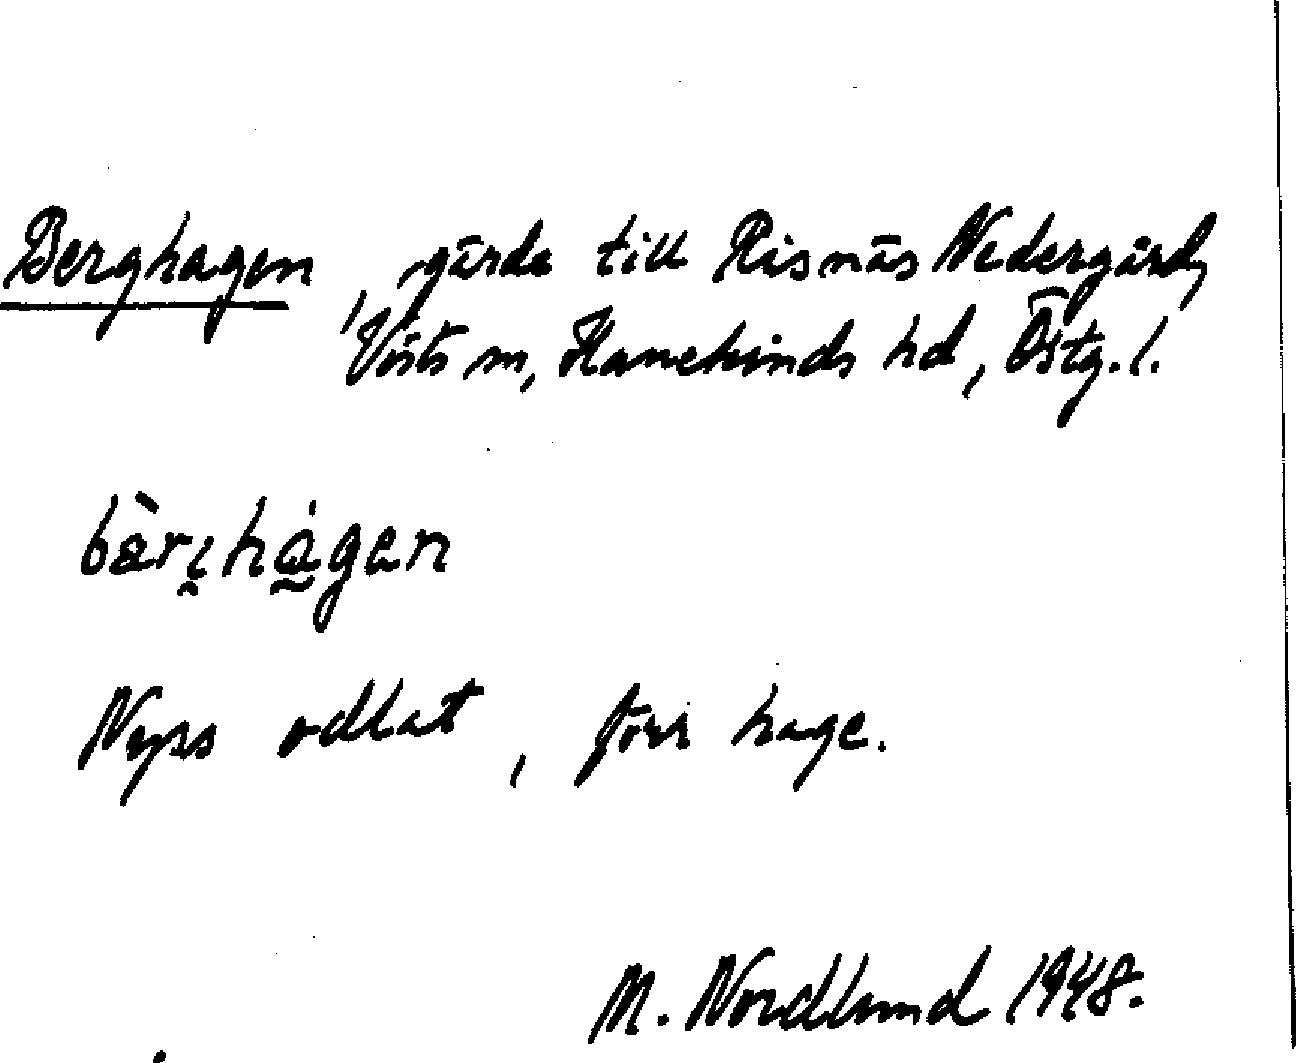 Berghagen, gärde till Risnäs Nedergård,
Vists sn, Hanekinds hd, Östg. l.
bàri̯há̰gen
Nyss odlat, förr hage.
M. Nordlund 1948.